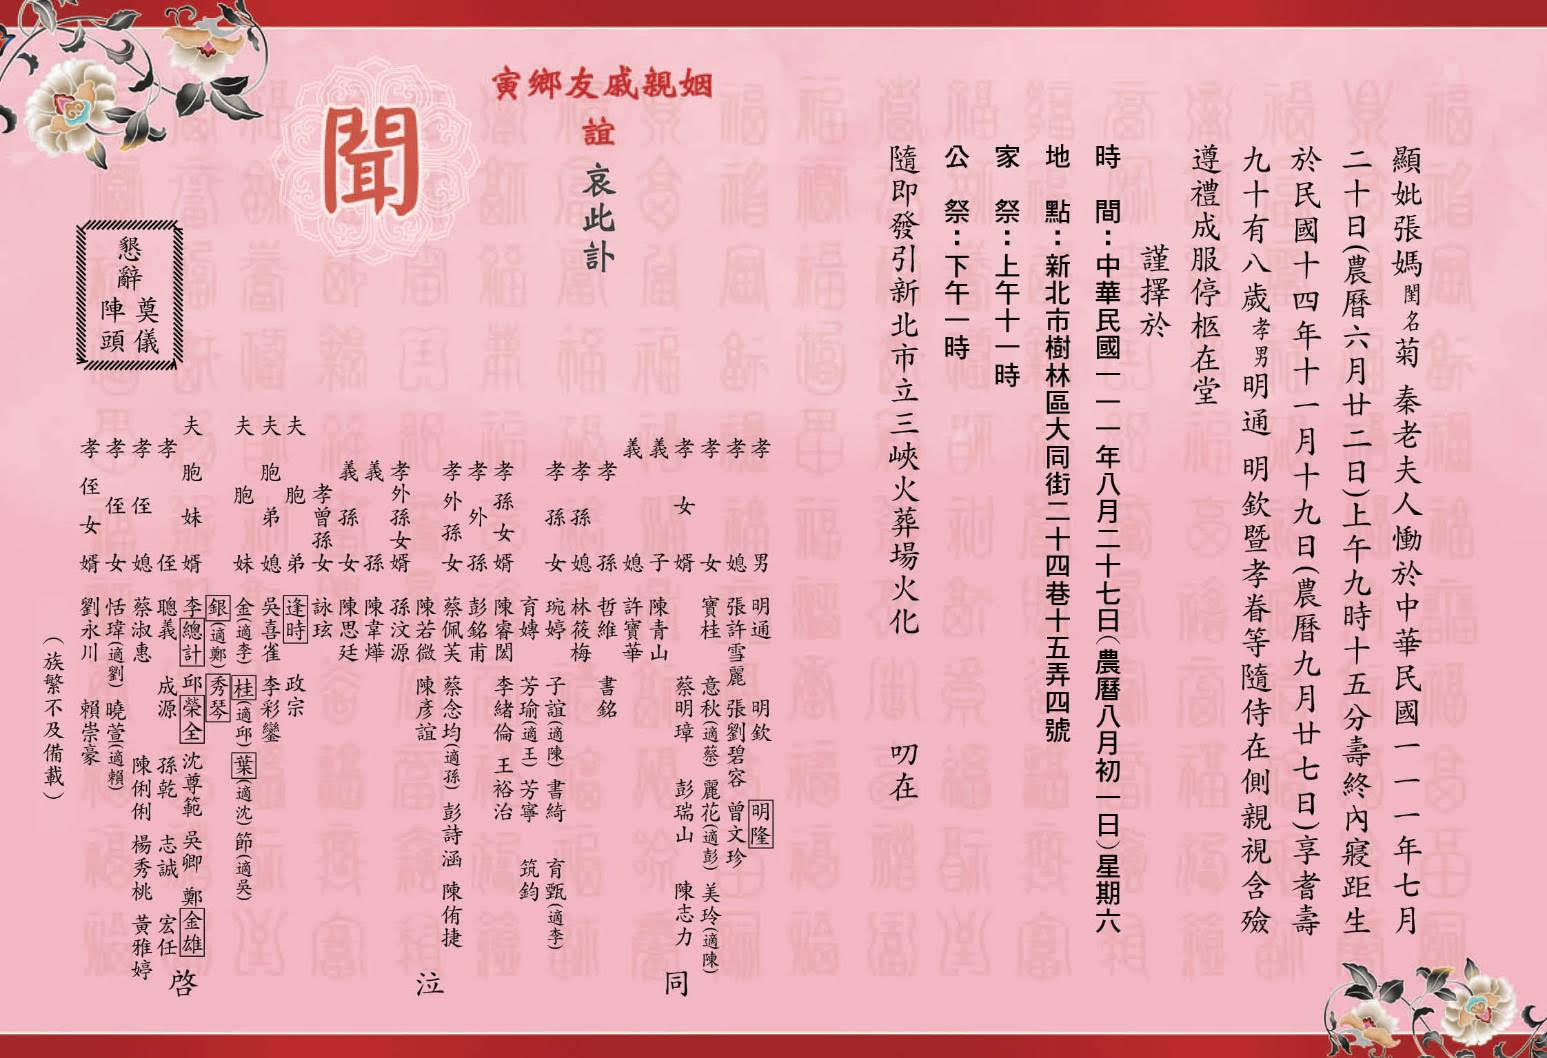 顯妣張媽閨名菊 秦老夫人慟於中華民國一一一年七月
二十日(農曆六月廿二日)上午九時十五分壽終內寢距生
於民國十四年十一月十九日(農曆九月廿七日)享耆壽
九十有八歲孝男明通 明欽暨孝眷等隨侍在側親視含殮
遵禮成服停柩在堂
謹擇於
時 間：中華民國一一一年八月二十七日(農曆八月初一日)星期六
地 點：新北市樹林區大同街二十四巷十五弄四號
家 祭：上午十一時
公 祭：下午一時
隨即發引新北市立三峽火葬場火化 叨在
姻親戚友鄉寅
誼 哀此訃
聞
孝男 明通 明欽 明隆
孝媳 張許雪麗 張劉碧容 曾文珍
孝女 寶桂 意秋(適蔡) 麗花(適彭) 美玲(適陳)
孝女婿 蔡明璋 彭瑞山 陳志力
義子 陳青山
義媳 許寶華
孝孫 哲維 書銘
孝孫媳 林筱梅
孝孫女 琬婷 子誼(適陳) 書綺 育甄(適李)
育嫥 芳瑜(適王) 芳寧 筑鈞
孝孫女婿 陳睿閎 李緒倫 王裕治
孝外孫 彭銘甫
孝外孫女 蔡佩芙 蔡念均(適孫) 彭詩涵 陳侑捷
陳若微 陳彥誼
孝外孫女婿 孫汶源
義孫 陳韋燁
義孫女 陳思廷
孝曾孫女 詠玹
夫胞弟 逢時 政宗
夫胞弟媳 吳喜雀 李彩鑾
夫胞妹 金(適李) 桂(適邱) 葉(適沈) 節(適吳)
銀(適鄭) 秀琴
夫胞妹婿 李總計 邱榮全 沈尊範 吳卿 鄭金雄
孝侄 聰義 成源 孫乾 志誠 宏任
孝侄媳 蔡淑惠 陳俐俐 楊秀桃 黃雅婷
孝侄女 恬瑋(適劉) 曉萱(適賴)
孝侄女婿 劉永川 賴崇豪
(族繁不及備載)
同 泣 啓
懇辭
奠儀
陣頭